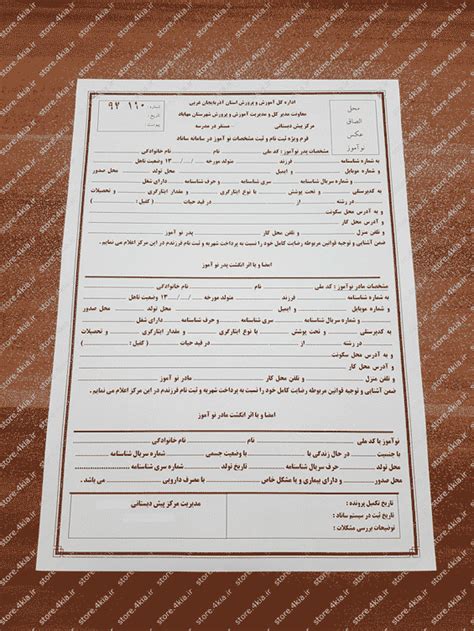 اداره کل آموزش و پرورش استان آذربایجان غربی
معاونت مدیر کل و مدیریت آموزش و پرورش شهرستان مهاباد
مرکز پیش دبستانی ............ مستقر در مدرسه
فرم ویژه ثبت نام و ثبت مشخصات نو آموز در سامانه سناد
شماره:
تاریخ:
پیوست:
محل
الصاق
عکس
نو آموز
مشخصات پدر نو آموز: کد ملی ............ نام ............ نام خانوادگی ............
به شماره شناسنامه ............ فرزند ............ متولد مورخه .../.../ ۱۳۰۰ وضعیت تاهل ............
و شماره موبایل ............ و ایمیل ............ محل تولد ............ محل صدور ............
و شماره سریال شناسنامه ............ سری شناسنامه ............ و حرف شناسنامه ............ دارای شغل ............
به کدپرسنلی ............ و تحت پوشش ............ با نوع ایثارگری ............ و مقدار ایثارگری ............ و تحصیلات
............ در رشته ............ و از ............ در قید حیات ............ ( کفیل : ............ )
و به آدرس محل سکونت ............
و تلفن منزل ............ و تلفن محل کار ............ پدر نو آموز ............
ضمن آشنایی و توجیه قوانین مربوطه رضایت کامل خود را نسبت به پرداخت شهریه و ثبت نام فرزندم در این مرکز اعلام می نمایم.
امضا و یا اثر انگشت پدر نو آموز
مشخصات مادر نوآموز: کد ملی ............ نام ............ نام خانوادگی ............
به شماره شناسنامه ............ فرزند ............ متولد مورخه .../.../ ۱۳۰۰ وضعیت تاهل ............
و شماره موبایل ............ و ایمیل ............ محل تولد ............ محل صدور ............
و شماره سریال شناسنامه ............ سری شناسنامه ............ و حرف شناسنامه ............ دارای شغل ............
به کدپرسنلی ............ و تحت پوشش ............ با نوع ایثارگری ............ و مقدار ایثارگری ............ و تحصیلات
............ در رشته ............ و از ............ در قید حیات ............ ( کفیل : ............ )
و به آدرس محل سکونت ............
و به آدرس محل کار ............
و تلفن منزل ............ و تلفن محل کار ............ مادر نو آموز ............
ضمن آشنایی و توجیه قوانین مربوطه رضایت کامل خود را نسبت به پرداخت شهریه و ثبت نام فرزندم در این مرکز اعلام می نمایم.
امضا و یا اثر انگشت مادر نو آموز
نوآموز با کد ملی ............ نام ............ نام خانوادگی ............
با جنسیت ............ در حال زندگی با ............ با وضعیت جسمی ............ شماره سریال شناسنامه ............
محل تولد ............ تاریخ تولد ............ شماره سری شناسنامه ............
محل صدور ............ و دارای بیماری و یا مشکل خاص ............ با مصرف دارویی ............ می باشد .
تاریخ تکمیل پرونده :
تاریخ ثبت در سیستم سناد :
توضیحات بررسی مشکلات :
مدیریت مرکز پیش دبستانی
store.4kia.ir